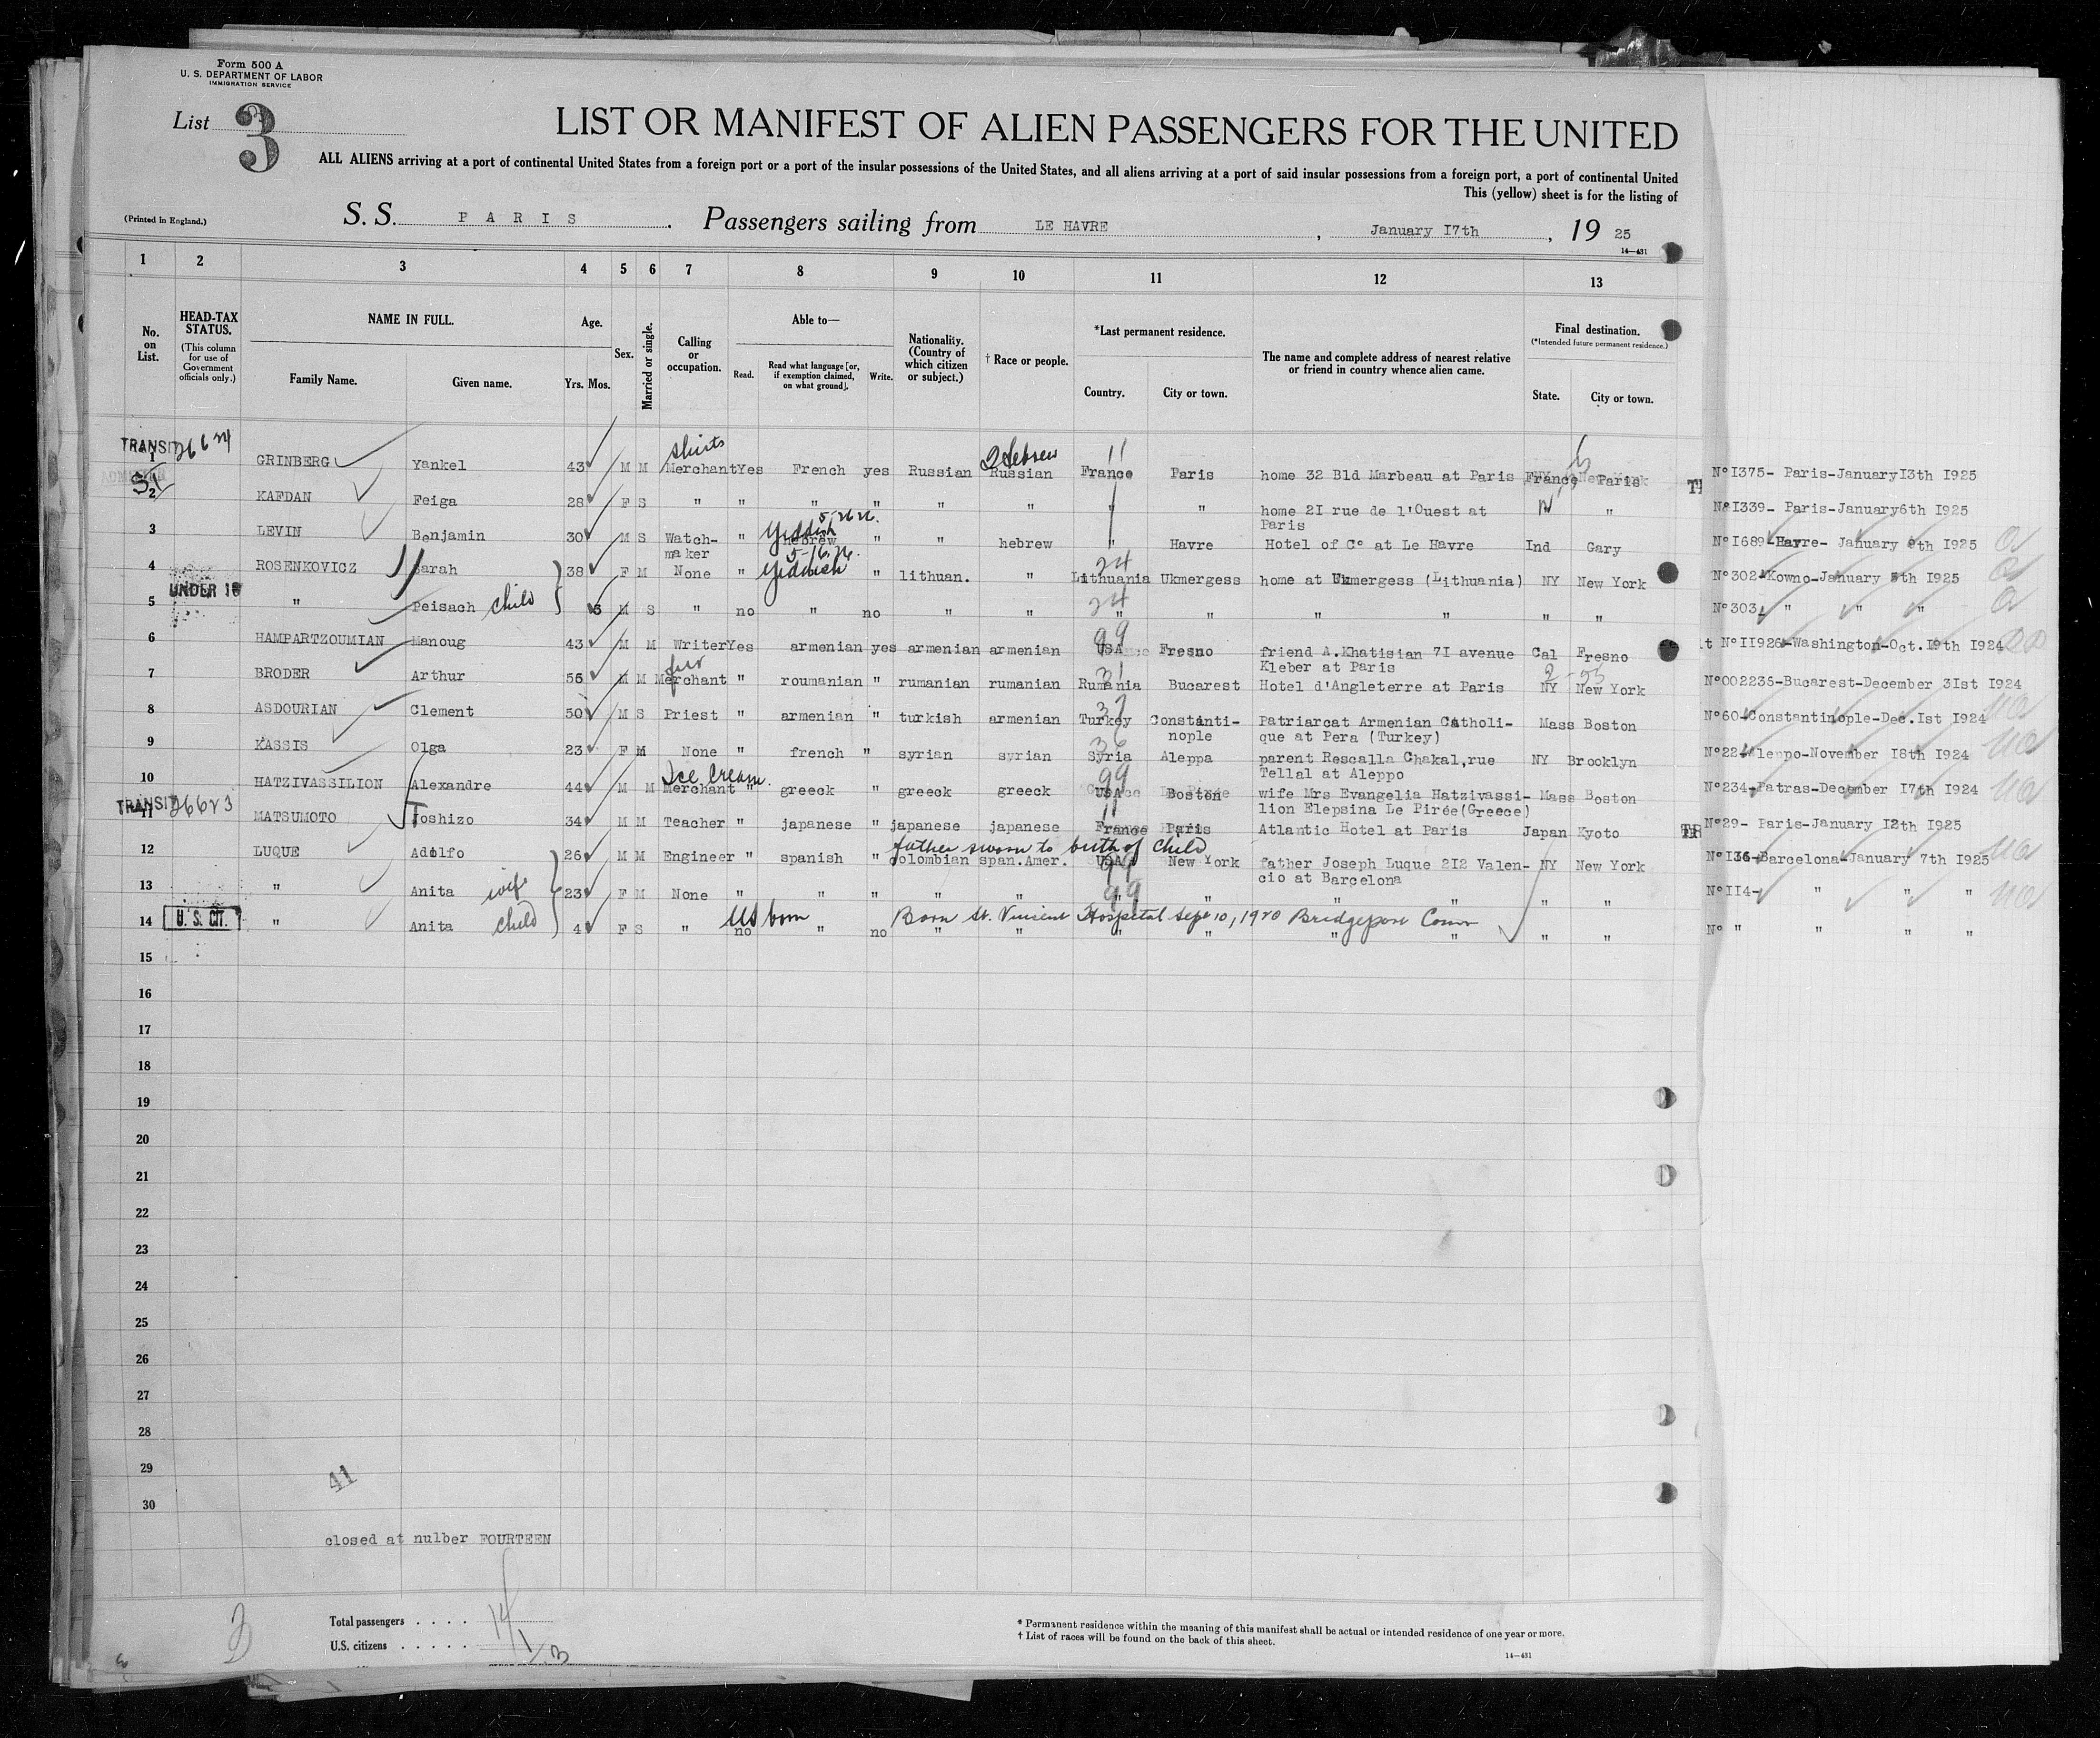 Form 500 A
U. S. DEPARTMENT OF LABOR
IMMIGRATION SERVICE
List 3
LIST OR MANIFEST OF ALIEN PASSENGERS FOR THE UNITED
ALL ALIENS arriving at a port of continental United States from a foreign port or a port of the insular possessions of the United States, and all aliens arriving at a port of said insular possessions from a foreign port, a port of continental United
This (yellow) sheet is for the listing of
(Printed in England.)
S. S. P A R I S . Passengers sailing from LE HAVRE , January I7th , 19 25
14—431
1 2 3 4 5 6 7 8 9 10 11 12 13
No. on List.
HEAD-TAX STATUS.
(This column for use of Government officials only.)
NAME IN FULL.
Family Name. Given name.
Age.
Yrs. Mos.
Sex.
Married or single.
Calling or occupation.
Able to—
Read. Read what language [or, if exemption claimed, on what ground]. Write.
Nationality. (Country of which citizen or subject.)
† Race or people.
*Last permanent residence.
Country. City or town.
The name and complete address of nearest relative or friend in country whence alien came.
Final destination.
(*Intended future permanent residence.)
State. City or town.
shirts Hebrew 11
TRANSIT 1 GRINBERG Yankel 43 M M Merchant Yes French yes Russian Russian France Paris home 32 Bld Marbeau at Paris France Paris N° I375- Paris-January I3th I925
2 KAFDAN Feiga 28 F S " " " " " " " " home 2I rue de l'Ouest at Paris " N° I339- Paris-January 6th I925
Yiddish
3 LEVIN Benjamin 30 M S Watch-maker " hebrew " " hebrew " Havre Hotel of C° at Le Havre Ind Gary N° I689-Havre- January 8th I925
24
4 ROSENKOVICZ Sarah 38 F M None " Yiddish " lithuan. " Lithuania Ukmergess home at Ukmergess (Lithuania) NY New York N° 302-Kowno-January 5th I925
UNDER 16 24
5 " Peisach child 6 M S " no " no " " " " " " " " N° 303 " " "
99
6 HAMPARTZOUMIAN Manoug 43 M M Writer Yes armenian yes armenian armenian USA Fresno friend A.Khatisian 7I avenue Kleber at Paris Cal Fresno N° II926-Washington-Oct.I9th I924
fur 31
7 BRODER Arthur 56 M M Merchant " roumanian " rumanian rumanian Rumania Bucarest Hotel d'Angleterre at Paris NY New York N° 002236-Bucarest-December 3Ist I924
37
8 ASDOURIAN Clement 50 M S Priest " armenian " turkish armenian Turkey Constanti-nople Patriarcat Armenian Catholi-que at Pera (Turkey) Mass Boston N° 60-Constantinople-Dec.Ist I924
36
9 KASSIS Olga 23 F M None " french " syrian syrian Syria Aleppa parent Rescalla Chakal,rue Tellal at Aleppo NY Brooklyn N° 22-Aleppo-November I8th I924
Ice Cream 99
10 HATZIVASSILION Alexandre 44 M M Merchant " greeck " greeck greeck USA Boston wife Mrs Evangelia Hatzivassi-lion Elepsina Le Pirée(Greece) Mass Boston N° 234-Patras-December I7th I924
TRANSIT 11
11 MATSUMOTO Toshizo 34 M M Teacher " japanese " japanese japanese France Paris Atlantic Hotel at Paris Japan Kyoto N° 29- Paris-January I2th I925
father sworn to birth of child
12 LUQUE Adolfo 26 M M Engineer " spanish " Colombian span.Amer. USA New York father Joseph Luque 2I2 Valen-cio at Barcelona NY New York N° I36-Barcelona-January 7th I925
99
13 " Anita wife 23 F M None " " " " " " " " " " N° II4- " " "
U. S. CIT. US born Born St. Vincent Hospital Sept 10, 1920 Bridgeport Conn
14 " Anita child 4 F S " no " no " " " " " " " " N° " " " "
15
16
17
18
19
20
21
22
23
24
25
26
27
28
29
30
41
closed at nulber FOURTEEN
Total passengers . . . . 14
U.S. citizens . . . . . 1
* Permanent residence within the meaning of this manifest shall be actual or intended residence of one year or more.
† List of races will be found on the back of this sheet.
14—431